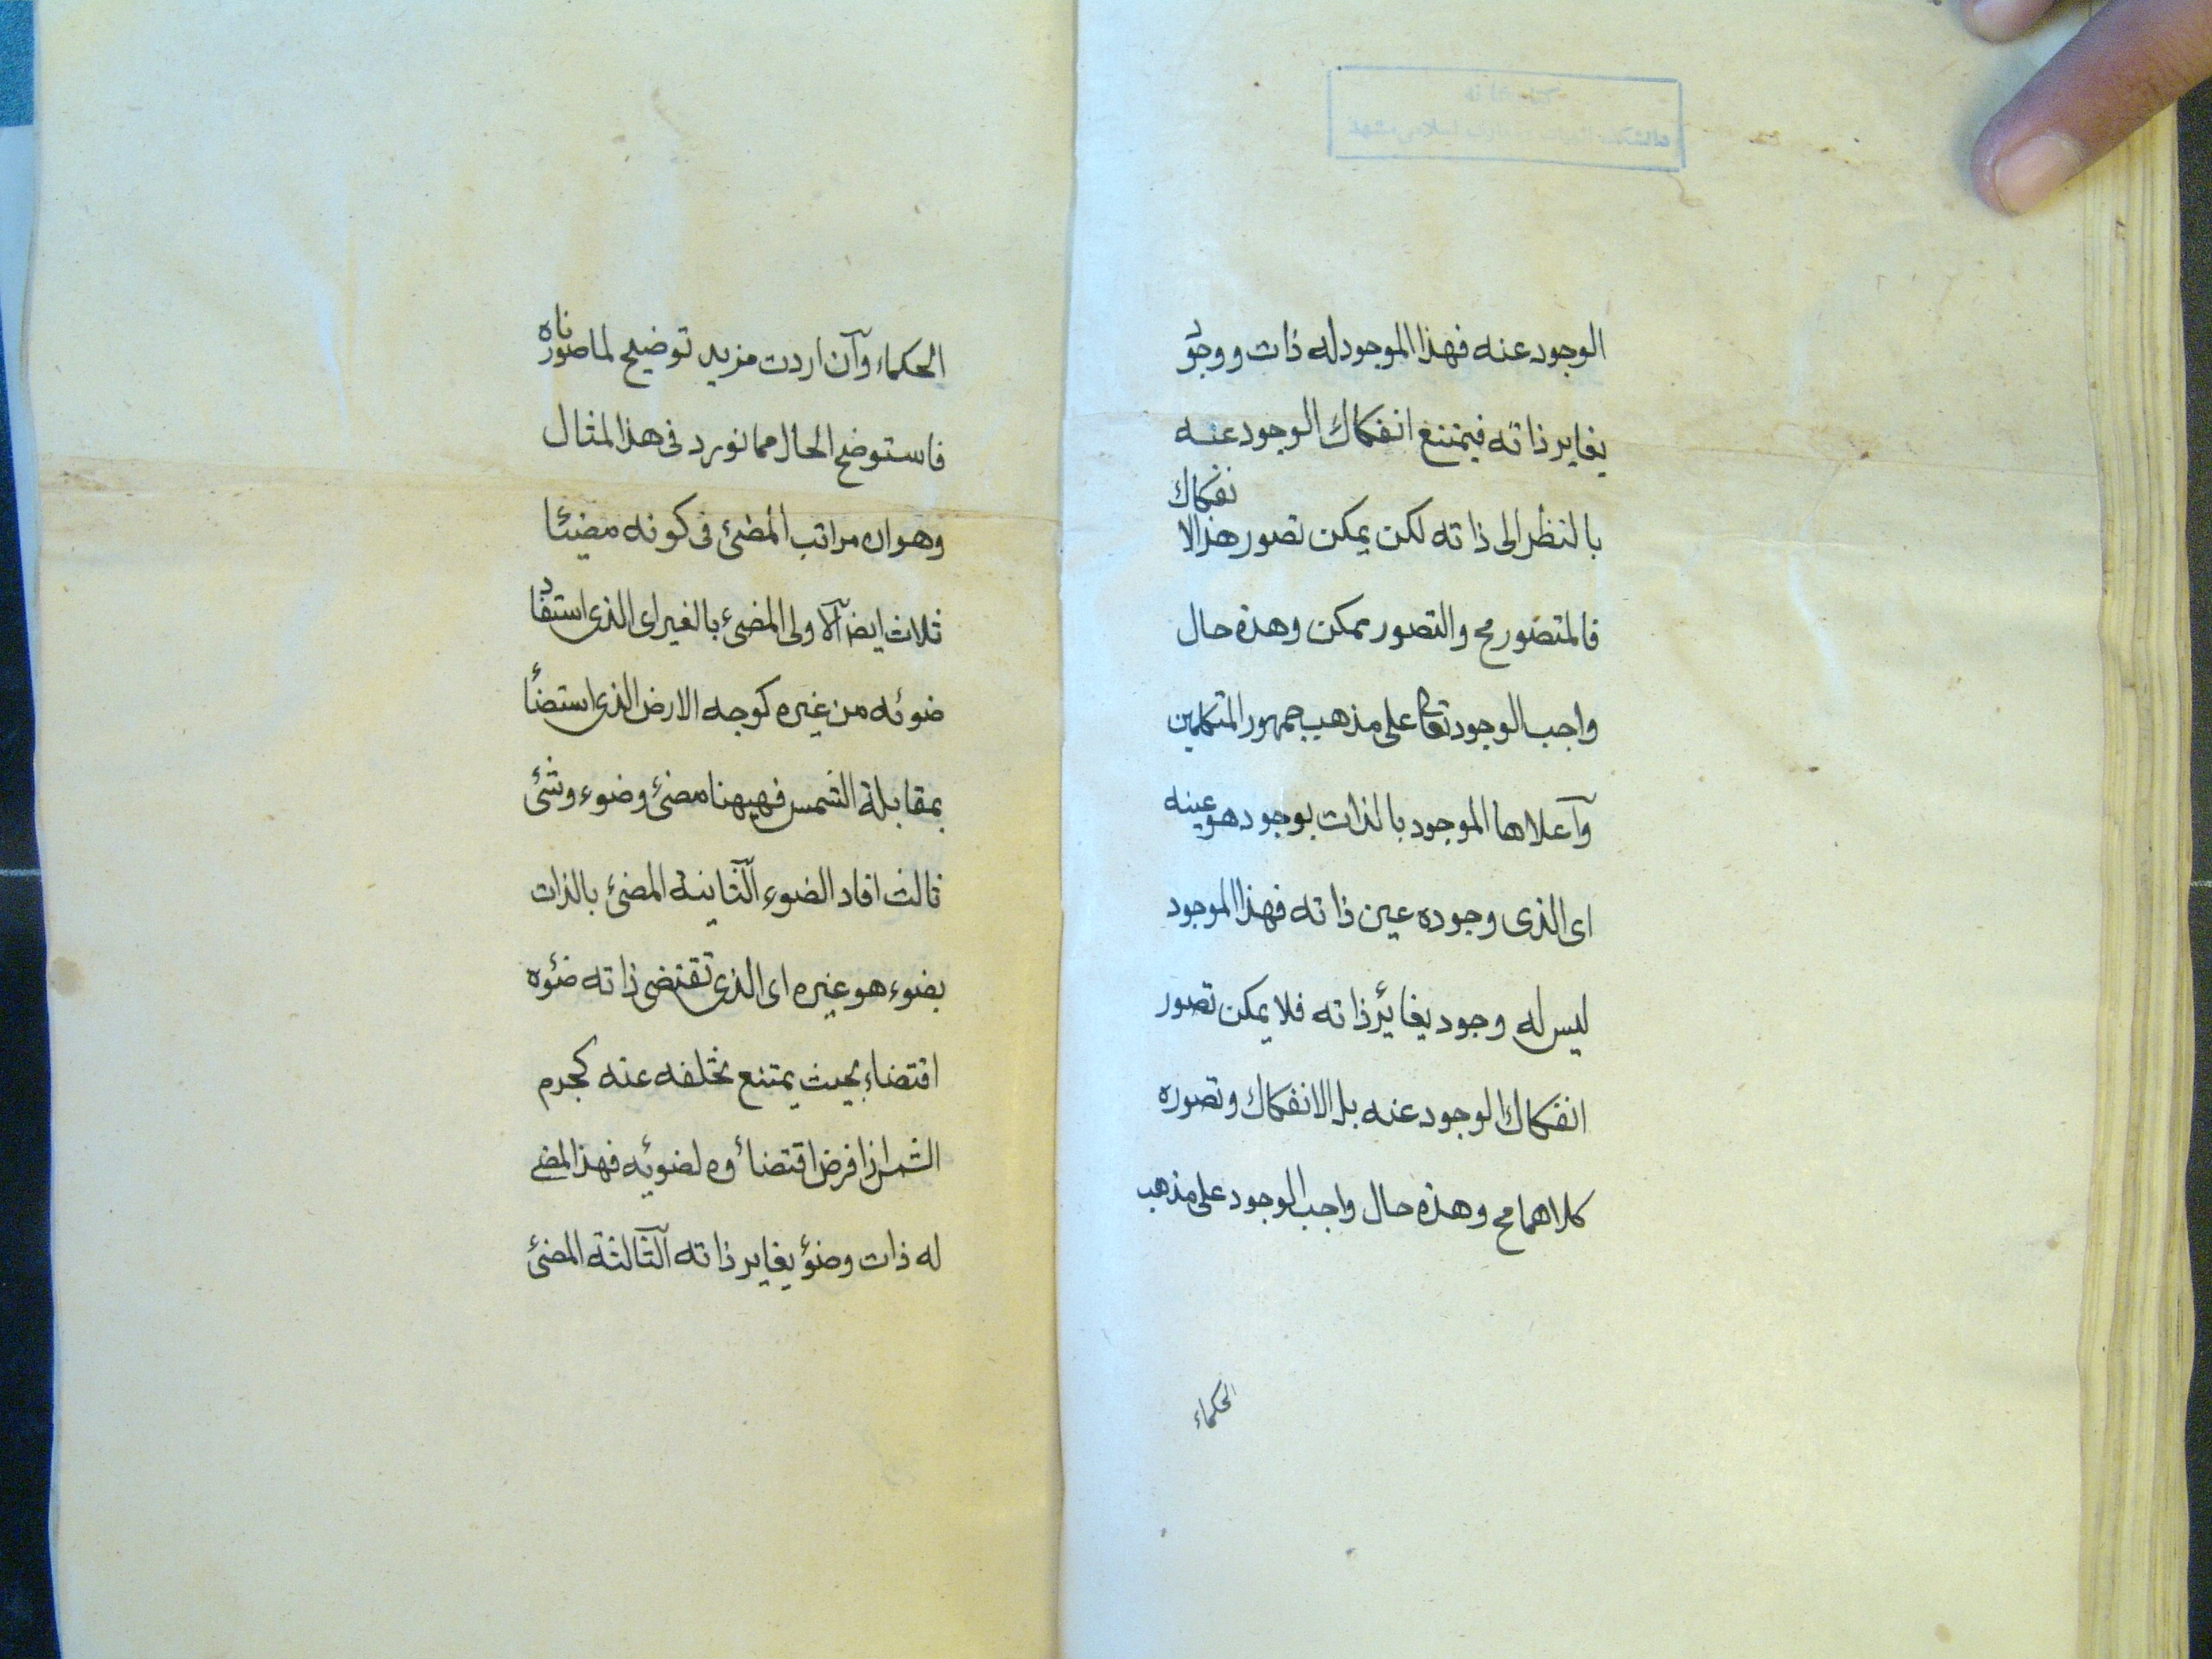 الوجود عنه فهذا الموجود له ذات ووجود
يغاير ذاته فيمتنع انفكاك الوجود عنه
بالنظر الى ذاته لكن يمكن تصور هذا الانفكاك
فالمتصور مح والتصور ممكن وهذه حال
واجب الوجود تعالى على مذهب جمهور المتكلمين
وآعلاها الموجود بالذات بوجود هو عينه
اى الذى وجوده عين ذاته فهذا الموجود
ليس له وجود يغائر ذاته فلا يمكن تصور
انفكاك الوجود عنه بل الانفكاك وتصوره
كلاهما مح وهذه حال واجب الوجود على مذهب
الحكماء
الحكماء وآن اردت مزيد توضيح لما صورناه
فاستوضح الحال مما نورد فى هذا المثال
وهو ان مراتب المضئ فى كونه مضيئا
ثلاث ايضا آلاولى المضئ بالغير اى الذى استفاد
ضوئه من غيره كوجه الارض الذى استضأ
بمقابلة الشمس فهيهنا مضئ وضوء وشئ
ثالث افاد الضوء آلثانية المضئ بالذات
بضوء هو غيره اى الذى تقتضى ذاته ضئوه
اقتضاء بحيث يمتنع تخلفه عنه كجرم
الشمس اذا فرض اقتضاؤه لضويه فهذا المضئ
له ذات وضؤ يغاير ذاته آلثالثة المضئ